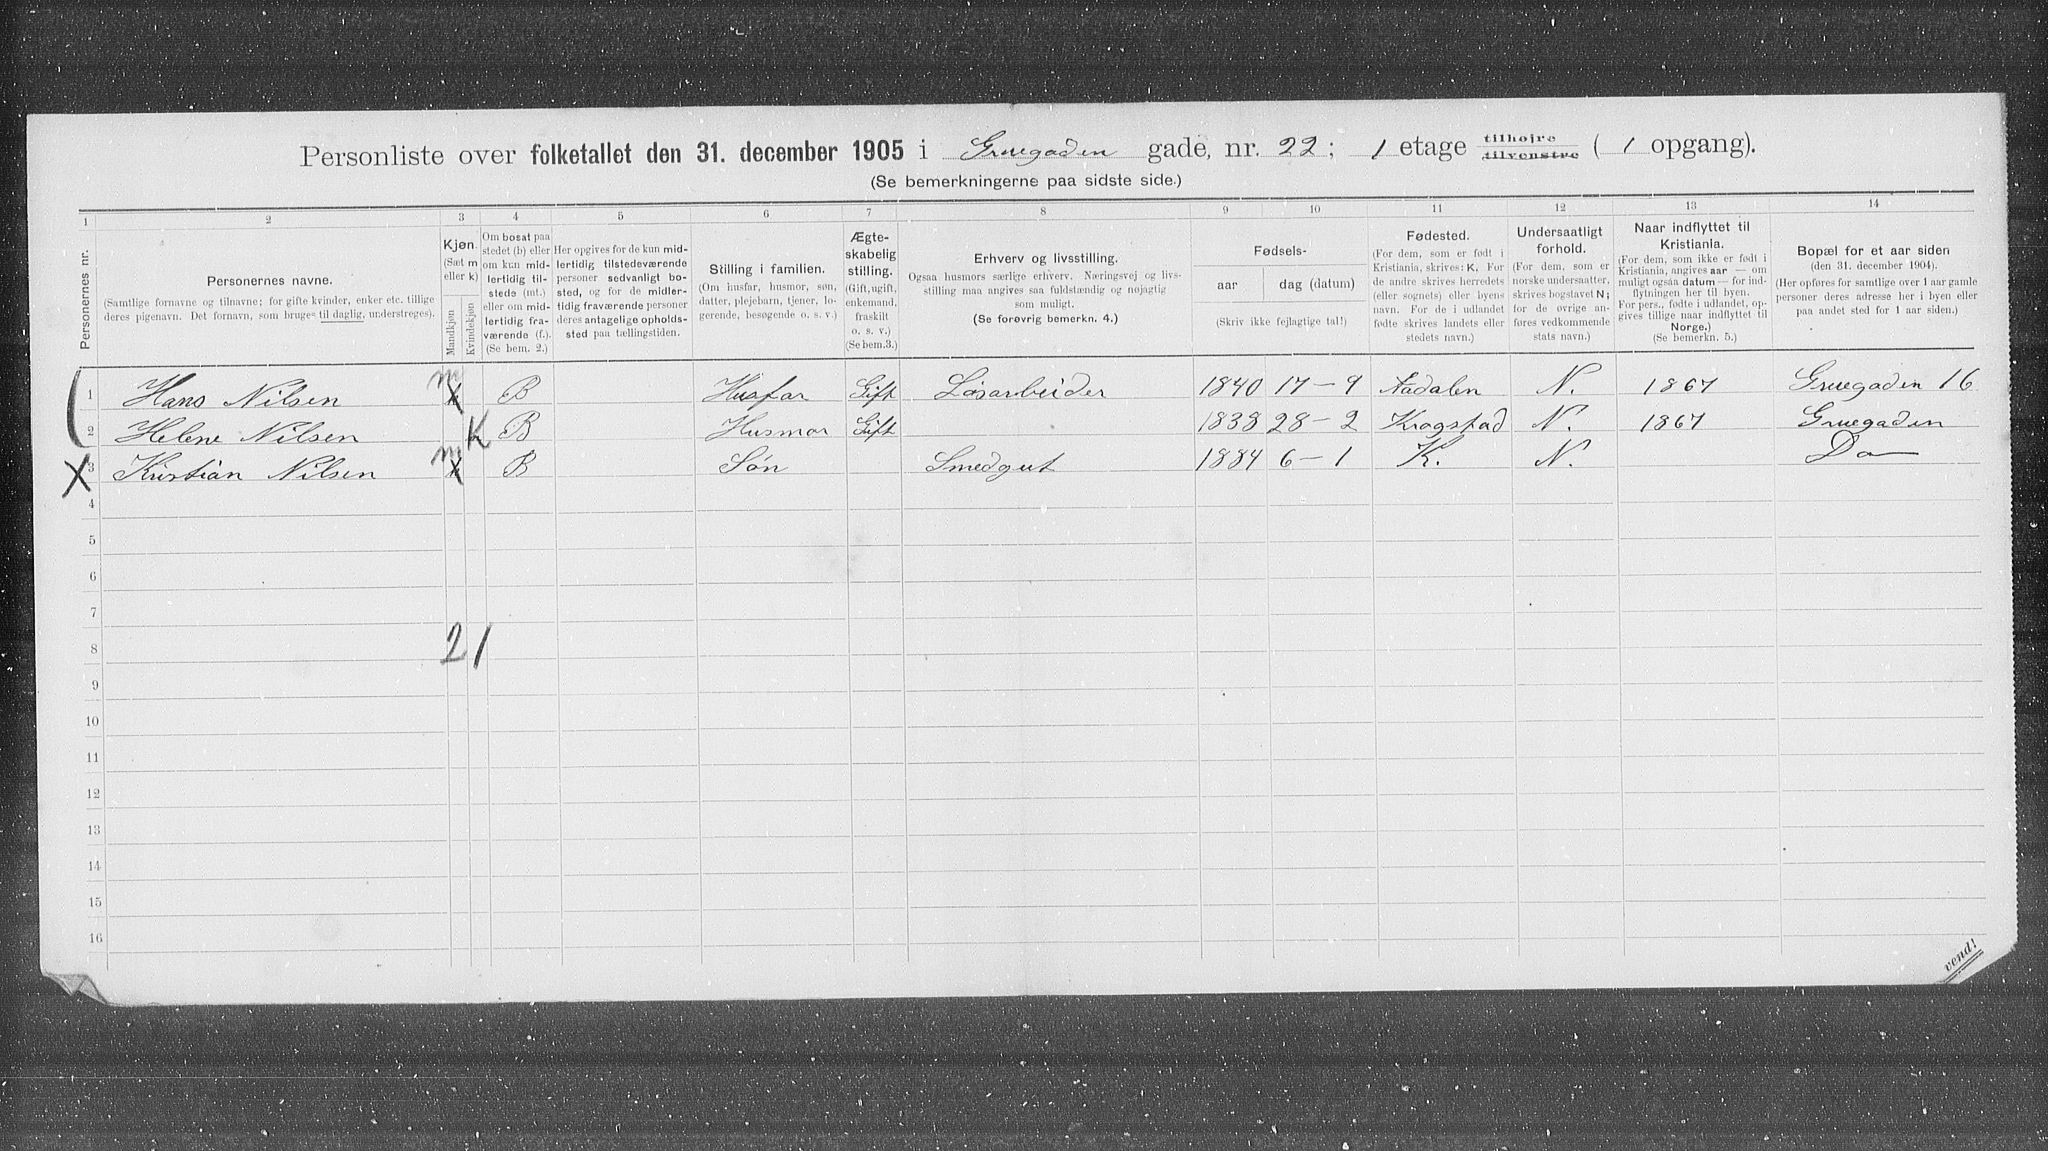 Personliste over folketallet den 31. december 1905 i Gruegaden gade, nr. 22; 1 etage tilhøjre tilvenstre ( 1 opgang).
(Se bemerkningerne paa sidste side.)
1 2 3 4 5 6 7 8 9 10 11 12 13 14
Personernes nr.
Personernes navne.
(Samtlige fornavne og tilnavne; for gifte kvinder, enker etc. tillige
deres pigenavn. Det fornavn, som bruges til daglig, understreges).
Kjøn.
(Sæt m
eller k)
Mandkjøn
Kvindekjøn
Om bosat paa
stedet (b) eller
om kun mid-
lertidig til-
stede (mt.)
eller om mid-
lertidig fra-
værende (f.).
(Se bem. 2.)
Her opgives for de kun mid-
lertidig tilstedeværende
personer sedvanligt bo-
sted, og for de midler-
tidig fraværende personer
deres antagelige opholds-
sted paa tællingstiden.
Stilling i familien.
(Om husfar, husmor, søn,
datter, plejebarn, tjener, lo-
gerende, besøgende o. s. v.)
Ægte-
skabelig
stilling.
(Gift, ugift,
enkemand,
fraskilt
o. s. v.)
(Se bem.3.)
Erhverv og livsstilling.
Ogsaa husmors særlige erhverv. Næringsvej og livs-
stilling maa angives saa fuldstændig og nøjagtig
som muligt.
(Se forøvrig bemerkn. 4.)
Fødsels-
aar dag (datum)
(Skriv ikke fejlagtige tal!)
Fødested.
(For dem, som er født i
Kristiania, skrives: K. For
de andre skrives herredets
(eller sognets) eller byens
navn. For de i udlandet
fødte skrives landets eller
stedets navn.)
Undersaatligt
forhold.
(For dem, som er
norske undersaatter,
skrives bogstavet N;
for de øvrige an-
føres vedkommende
stats navn.)
Naar indflyttet til
Kristiania.
(For dem, som ikke er født i
Kristiania, angives aar — om
muligt ogsaa datum — for ind-
flytningen her til byen.
For pers., fødte i udlandet, op-
gives tillige naar indflyttet til
Norge.)
(Se bemerkn. 5.)
Bopæl for et aar siden
(den 31. december 1904).
(Her opføres for samtlige over 1 aar gamle
personer deres adresse her i byen eller
paa andet sted for 1 aar siden.)
1 Hans Nilsen m x B Husfar Gift Løsarbeider 1840 17-9 Aadalen N. 1867 Gruegaden 16
2 Helene Nilsen K B Husmor Gift 1838 28-2 Kragstad N. 1867 Gruegaden
X 3 Kristian Nilsen m x B Søn Smedgut 1884 6-1 K. N. Do
4
5
6
7
8 2 1
9
10
11
12
13
14
15
16
vend!